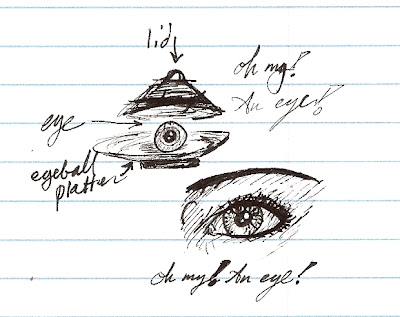 lid
oh my!
An eye!
eye
eyeball
platter
oh my! An eye!